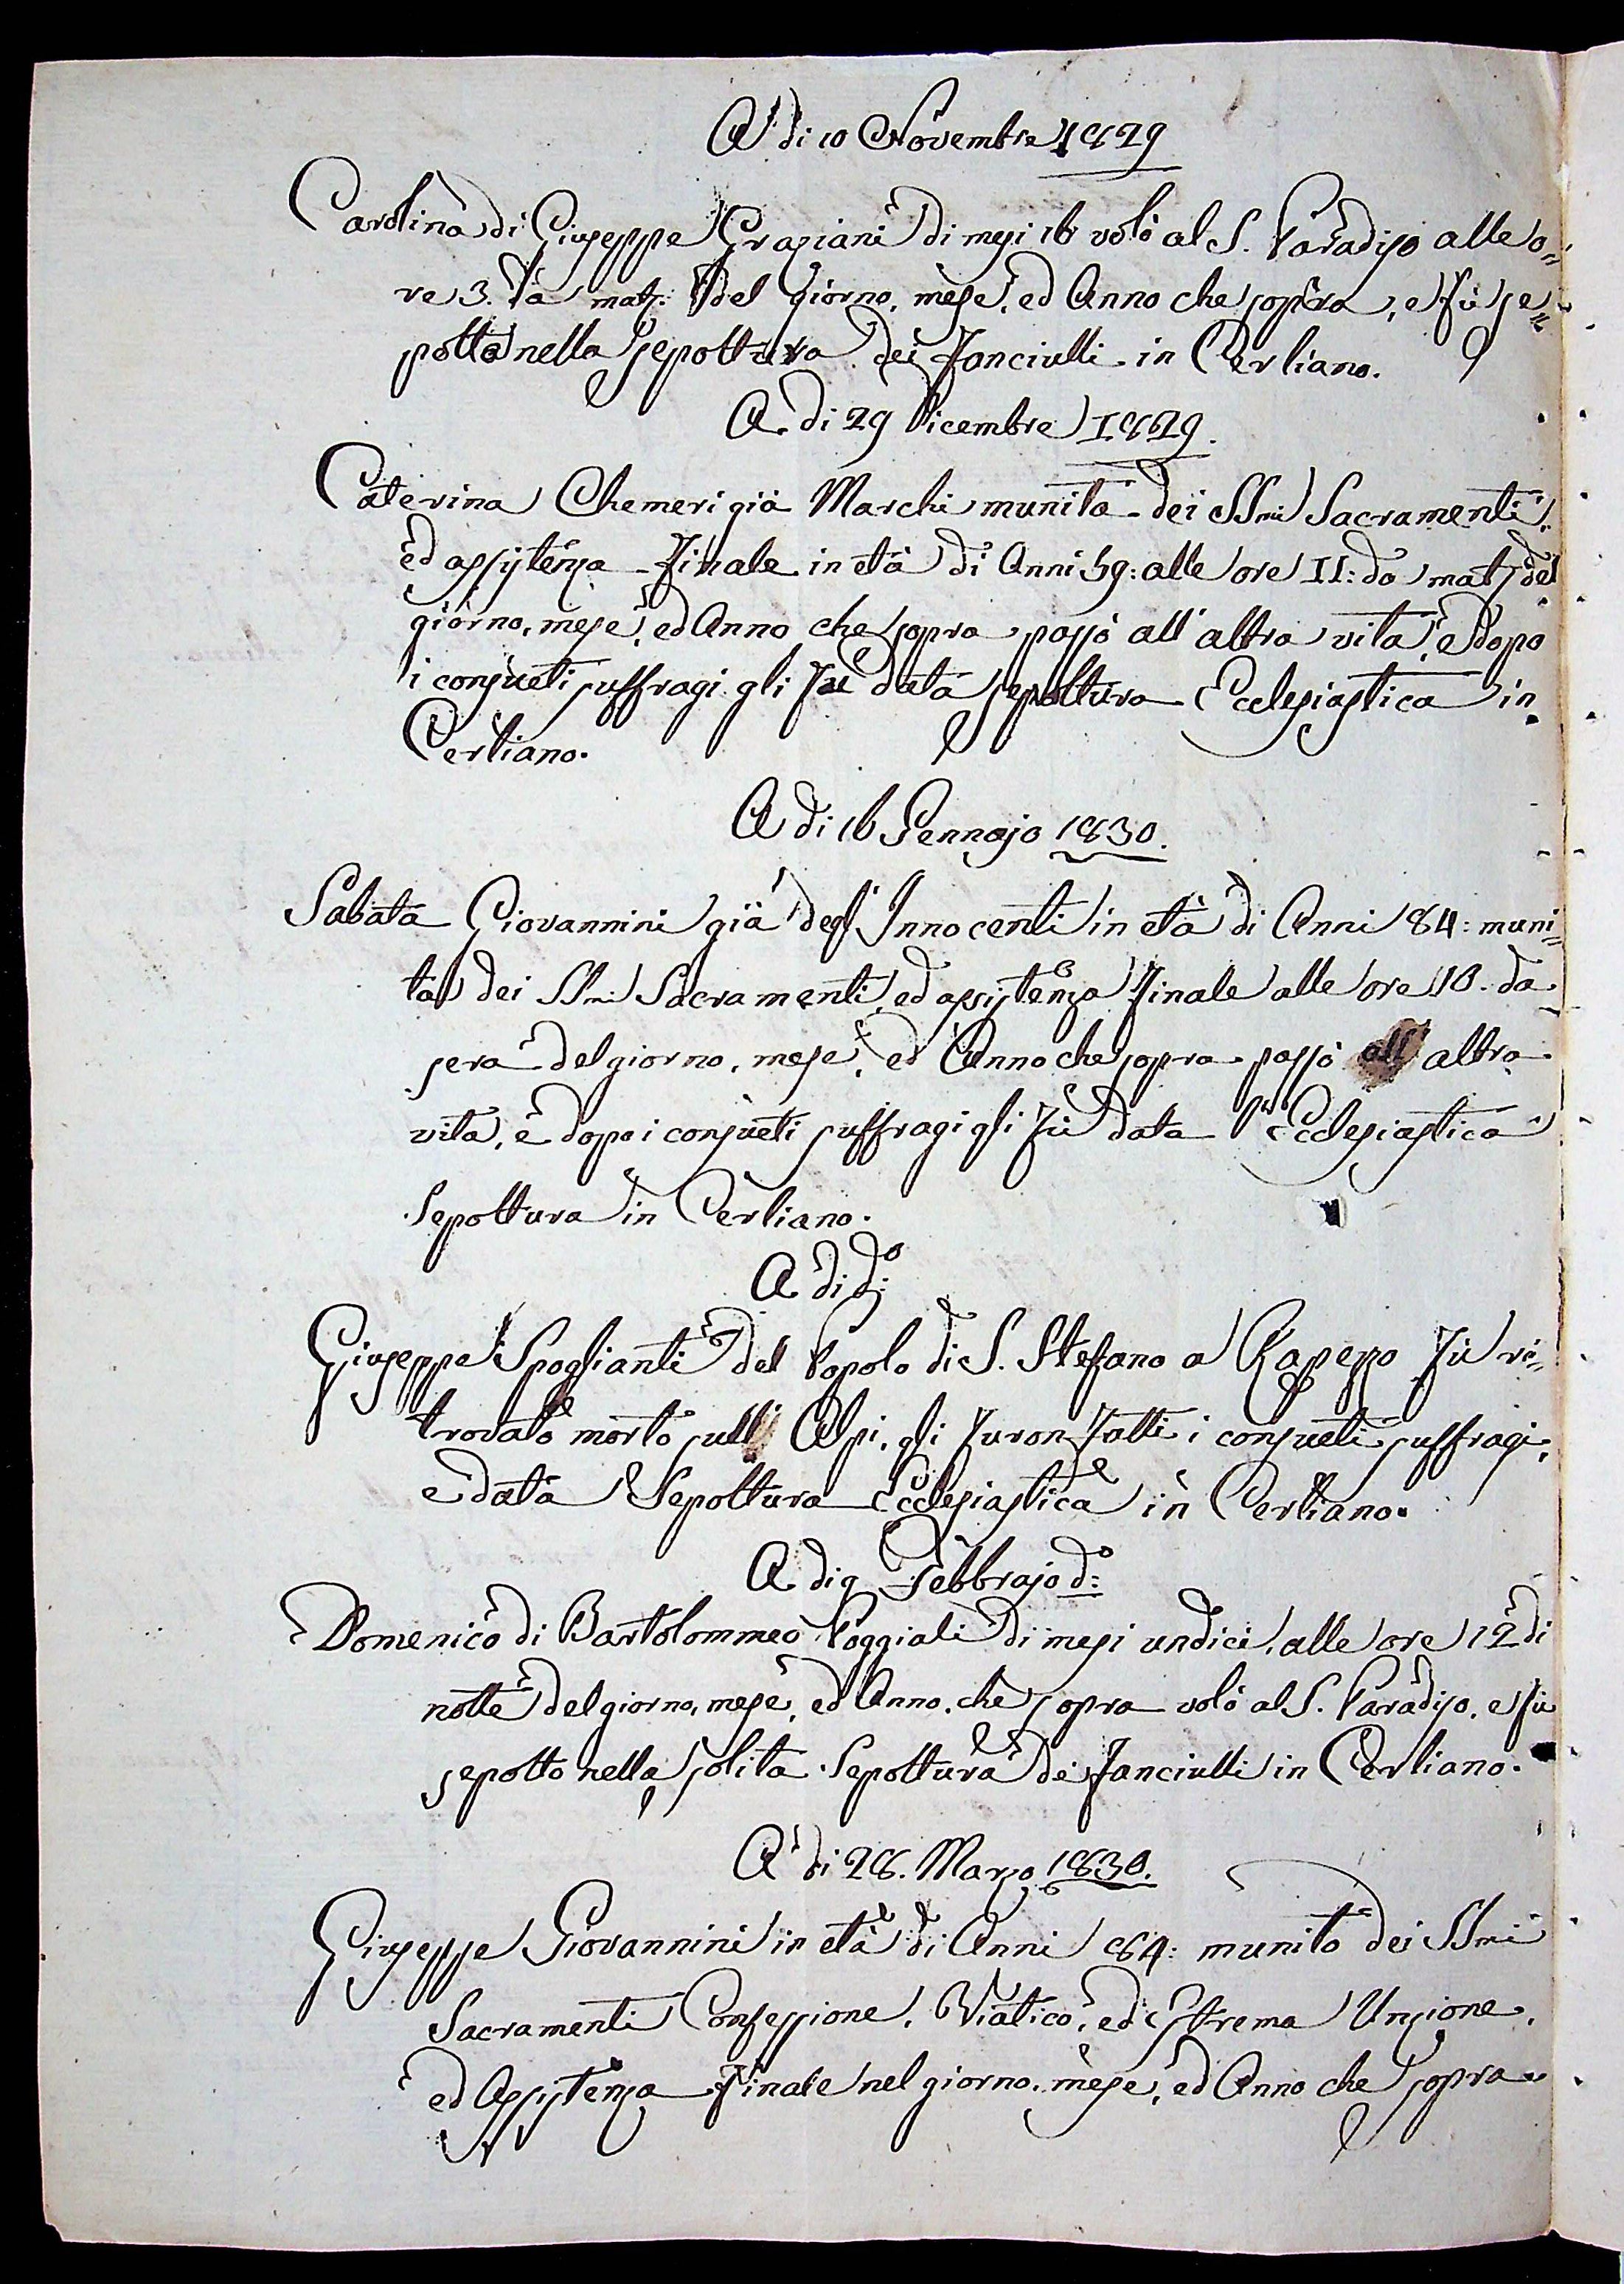 A di 10 Novembre 1829
Carolina di Giuseppe Graziani di mesi 16 volò al S. Paradiso alle o=
re 3. da mat. del giorno, mese, ed Anno che sopra, e fù se=
polta nella sepoltura dei Fanciulli in Cerliano.
A di 29 Dicembre 1829.
Caterina Chemeri già Marchi munita dei SSmi Sacramenti,
ed assistenza Finale in età di Anni 59: alle ore II: da mat. del
giorno, mese, ed Anno che sopra passò all'altra vita, e dopo
i consueti suffragi gli Fu data sepoltura Ecclesiastica in
Cerliano.
A di 16 Gennajo 1830.
Sabata Giovannini già degl'Innocenti in età di Anni 84: muni=
ta dei SSmi Sacramenti, ed assistenza Finale alle ore 10. da
sera del giorno, mese, ed Anno che sopra passò all'altra
vita, e dopo i consueti suffragi gli Fù data l'Ecclesiastica
Sepoltura in Cerliano.
A di do:
Giuseppe Spoglianti del Popolo di S. Stefano a Rapezzo Fù ri=
trovato morto sull'Alpi, gli Furon Fatti i consueti suffragi,
e data Sepoltura Ecclesiastica in Cerliano.
A di 9 Febbrajo do:
Domenico di Bartolommeo Poggiali di mesi undici, alle ore 12 di
notte del giorno, mese, ed Anno che sopra volò al S. Paradiso, e fù
sepolto nella solita Sepoltura dei Fanciulli in Cerliano.
A di 28. Marzo 1830.
Giuseppe Giovannini in età di Anni 64: munito dei SSmi
Sacramenti Confessione, Viatico, ed Estrema Unzione,
ed Assistenza Finale nel giorno, mese, ed Anno che sopra